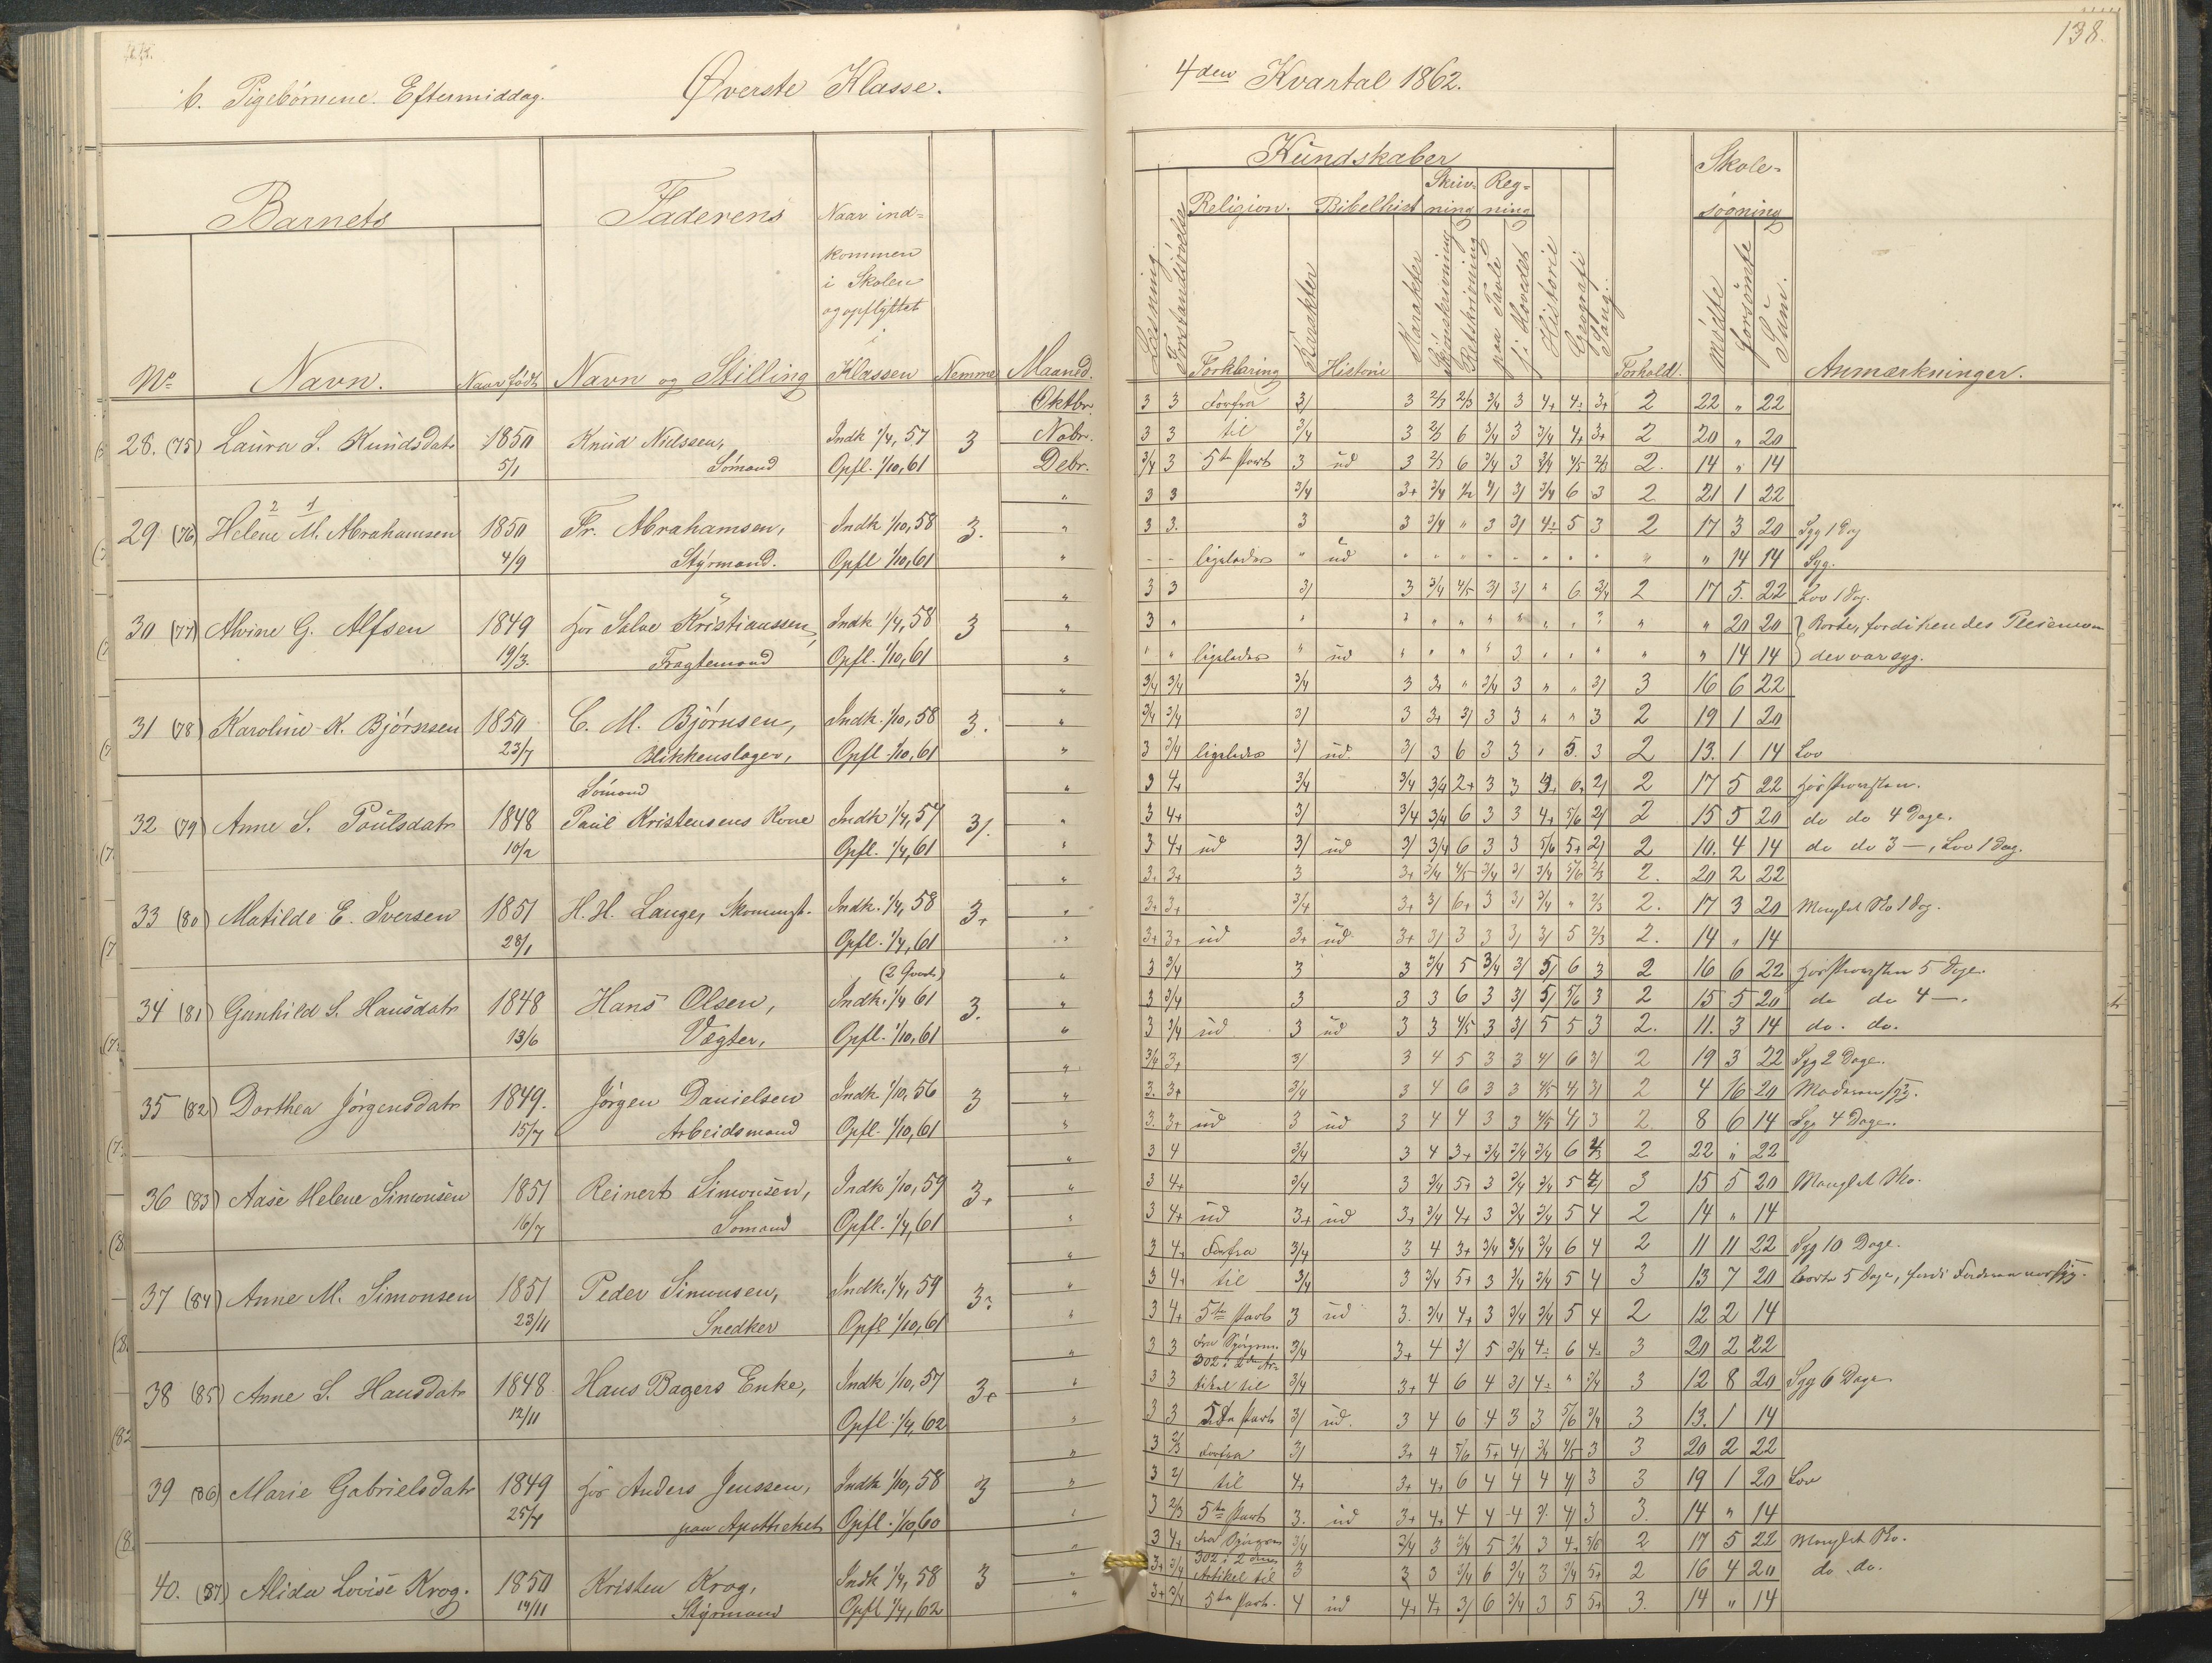 138.
b. Pigebørnene. Eftermiddag. Øverste Klasse.
4den Kvartal 1862.
Barnets
Faderens
Naar ind=
kommen
i Skolen
og opflyttet
i
No Navn. Naar født Navn og Stilling Klassen Nemme Maaned.
Kundskaber
Skole=
søgning
Religion. Bibelhist Skriv=ning Reg=ning
Læsning
Forstandsøvelse
Forklaring
Karakter
Historie
Karakter
Skjønskrivning
Retskrivning
paa Tavle
i Hovedet
Historie
Geografi
Sang.
Forhold.
mødte
forsømte
Sum.
Anmærkninger.
Oktbr. 3 3 Forfra 3/ 3 2/3 2/3 3/4 3 4+ 4÷ 3+ 2 22 " 22
28. (75) Laura S. Knudsdatr 1850 Knud Nielssen, Indk 1/4, 57 3 Nobr. 3 3 til 3/4 3 2/3 6 3/4 3 3/4 4+ 3+ 2 20 " 20
5/1 Sømand Opfl. 1/10, 61 Debr. 3/4 3 5te Part 3 ud 3 2/3 6 3/4 3 3/4 4/5 2/3 2. 14 " 14
" 3 3 3/4 3+ 3/4 3/ 3/4 6 3 2 21 1 22
29 (76) Helene M. Abrahamsen 1850 Fr. Abrahamsen, Indk 1/10, 58 3. " 3 3. 3 3 3/4 " 3 3/ 4÷ 5 3 2 17 3 20 Syg 1 Dag
4/9 Styrmand. Opfl 1/10, 61 " ligeledes " ud " 14 14 Syg.
" 3 3 3/ 3 3/4 4/5 3/ 3/ " 6 3/4 2 17 5. 22 Lov 1 Dag.
30 (77) Alvine G. Alfsen 1849 hos Salve Kristianssen, Indk 1/4, 58 3 " 3 " " 20 20 Borte, fordi hendes
19/3. Fragtemand Opfl. 1/10, 61 " ligeledes " ud 3 " 14 14 der var syg.
" 3/4 3/4 3/4 3 3+ " 3/4 3 " " 3/ 3 16 6 22
31 (78) Karoline K. Bjørnsen 1850 C. M. Bjørnsen, Indk. 1/10, 58 3. " 3/4 3/4 3/ 3 3+ 3/ 3 3 " " 3 2 19 1 20
23/7 Blikkenslager, Opfl. 1/10, 61 " 3 3/4 ligeledes 3/ ud. 3/ 3 6 3 3 " 5. 3 2 13. 1 14 Lov
Sømand " 3 4+ 3/4 3/4 3/4 2+ 3 3 2/ 2 17 5 22
32 (79) Anne S. Paulsdatr 1848 Paul Kristensens Kone Indk 1/4, 57 3/. " 3 4+ 3/ 3/4 3/4 6 3 3 4+ 5/6 2/ 2 15 5 20 do do 4 Dage.
10/2 Opfl. 1/4, 61 " 3 4+ ud 3/ ud 3/ 3/4 6 3 3 5/6 5+ 2/ 2 10. 4 14 do do 3 —, Lov 1 Dag.
" 3+ 3+ 3 3+ 3/4 4/5 3/4 3/ 3/4 5/6 2/3 2. 20 2 22
33 (80) Matilde E. Iversen 1851 H. H. Lange, Skomagr. Indk. 1/4, 58 3+ " 3+ 3+ 3/4 3+ 3/ 6+ 3 3/ 3/4 " 2/3 2. 17 3 20 Manglet Sko 1 Dag.
28/1 Opfl. 1/4, 61 " 3+ 3+ ud 3+ ud 3+ 3/ 3 3 3/ 3/ 5 2/3 2. 14 " 14
(2 Gvart) " 3 3/4 3 3 3/4 5 3/4 3/ 5/ 6 3 2 16 6 22 5 Dage.
34 (81) Gunhild S. Hansdatr 1848 Hans Olsen, Indk. 1/4 61 3. " 3 3/4 3 3 3 6 3 3/ 5/ 5/6 3 2 15 5 20 do do 4 —.
13/6 Vægter, Opfl. 1/10, 61 " 3 3/4 ud 3 ud 3 3 4/5 3 3/ 5 5 3 2. 11. 3 14 do. do.
" 3/4 3+ 3/ 3 4 5 3 3 4/ 6 3/ 2 19 3 22 Syg 2 Dage.
35 (82) Dorthea Jørgensdatr 1849. Jørgen Danielsen Indk 1/10, 56 3 " 3. 3+ 3/4 3 4 6 3 3 4/5 4/ 3/ 2 4 16 20 Moderen syg.
15/7 Arbeidsmand Opfl. 1/10, 61 " 3. 3+ ud 3 ud 3 4 4 3 3 4/5 4/ 3 2. 8 6 14 Syg 4 Dage.
" 3 4 3/4 3 4 3+ 3/4 3/4 3/4 6 2 22 " 22
36 (83) Aase Helene Simonsen 1851 Reinert Simonsen, Indk 1/10, 59 3+ " 3 4+ 3/4 3 3/4 5+ 3 3/4 3/4 5 3 15 5 20 Manglet Sko.
16/7 Sømand Opfl. 1/4, 61 " 3 4+ ud 3+ ud 3+ 3/4 4+ 3 3/4 3/4 5 4 2 14 " 14
" 3 4+ Forfra 3/4 3 4 3+ 3/4 3/4 3/4 6 4 2 11 11 22 Syg 10 Dage.
37 (84) Anne M. Simonsen 1851 Peder Simonsen, Indk. 1/4, 59 " 3 4+ til 3/4 3 3/4 5+ 3 3/4 3/4 5 4 3 13 7 20 borte 5 Dage, fordi Faderen var syg.
23/11 Snedker Opfl 1/10, 61 " 3 4+ 5te Part 3 ud 3. 3/4 4+ 3 3/4 3/4 5 4 2 12 2 14
" 3 3 Fra Spørgsm. 302 i 2den Ar= 3/4 3+ 4 3/ 5 3/4 4÷ 6 4÷ 3 20 2 22
38 (85) Anne S. Hansdatr 1848 Hans Bagers Enke, Indk 1/10, 57 3+ " 3 3 tikel til 3/4 3+ 4 6 4 3/ 4÷ " 3/4 3 12 8 20 Syg 6 Dage
12/11 Opfl. 1/4, 62 " 3 3 5te Part 3/ ud. 3 4 6 4 3 3 5/6 3/4 3 13. 1 14
" 3 2/3 Forfra 3/ 3+ 4 5/6 5+ 4/ 3/4 4/5 3 3 20 2 22
39 (86) Marie Gabrielsdatr 1849 hos Anders Jenssen, Indk 1/10, 58 3 " 3 2/ til 4+ 3+ 4+ 6 4 4 4 4/ 3 3 19 1 20 Lov
25/7 paa Apotheket Opfl. 1/10, 60 " 3 2/3 5te Part 3. ud 3+ 4+ 4 4 4 4/ 3 3. 14 " 14
" 3 4+ Fra Spørgsm 3/4 3/4 3 3/4 5 3/4 3 4+ 5/6 2 17 5 22 Manglet Sko.
40. (87) Alida Lovise Krog. 1850 Kristen Krog, Indk 1/4, 58 3 " 3+ 3/4 302 i 2 Artikel til 3 3 3 3/4 6 3/4 3 3/4 5+ 2 16 4 20 do. do.
14/11 Styrmand Opfl 1/4, 62 " 3+ 3/4 5te Part. 4 ud 4+ 4+ 3/ 6 3/4 3 5 5+ 3. 14 " 14